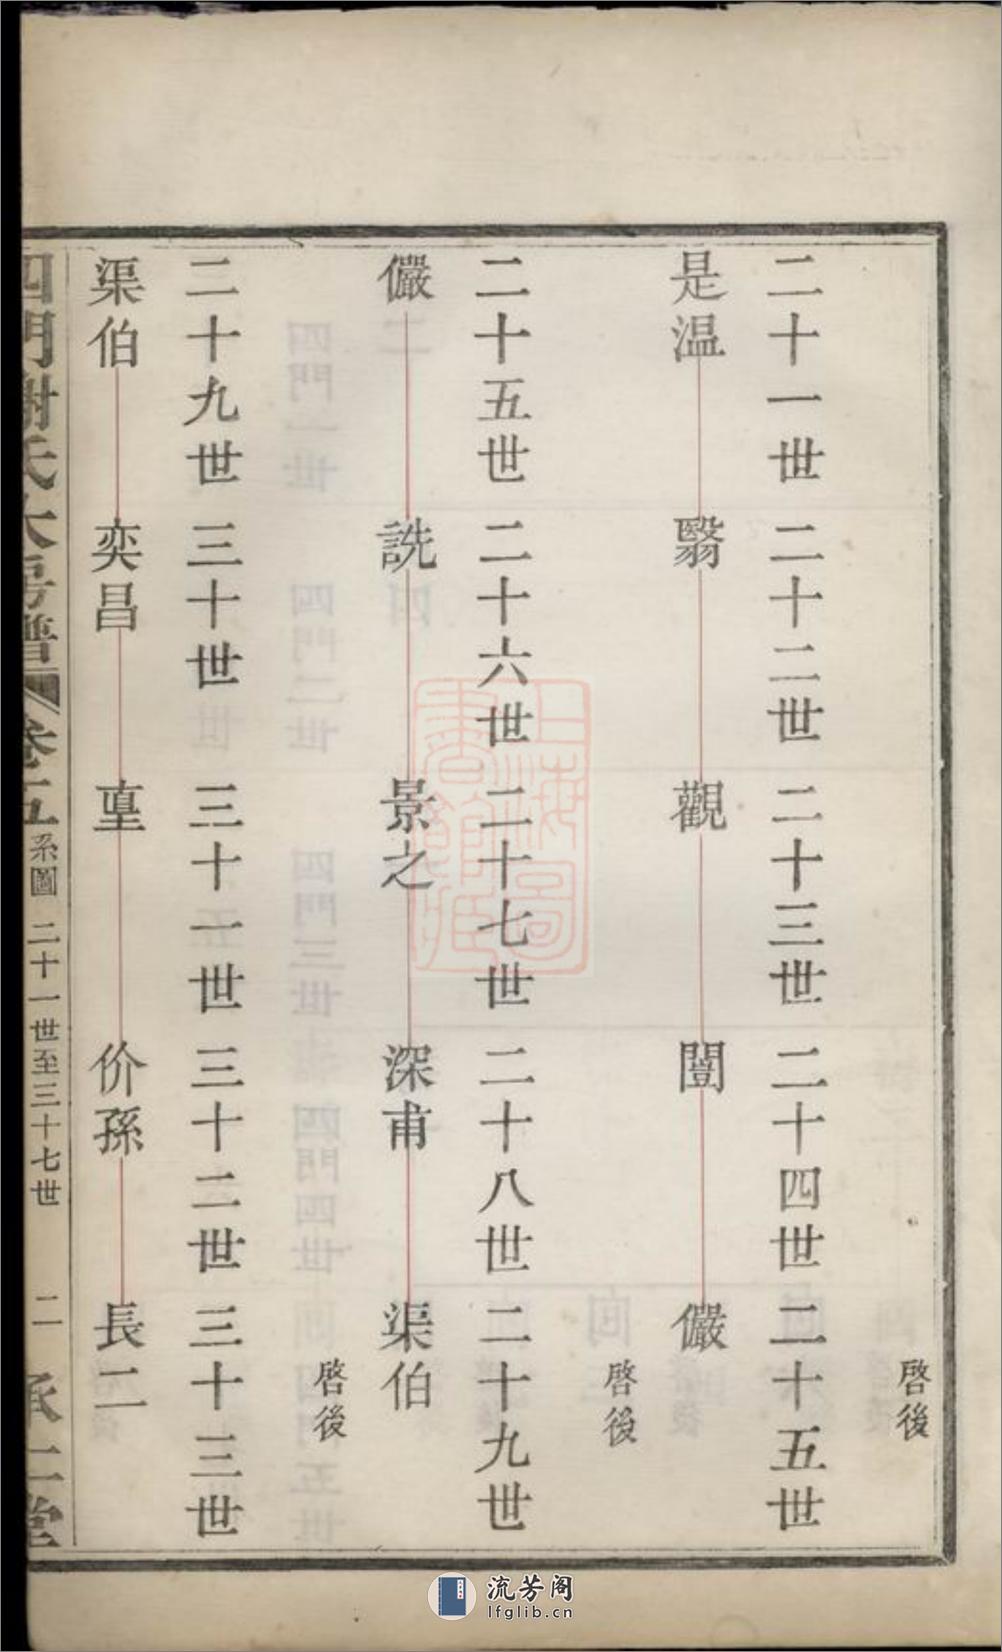 啓後
二十一世 二十二世 二十三世 二十四世 二十五世
是温 翳 觀 闓 儼
啓後
二十五世 二十六世 二十七世 二十八世 二十九世
儼 詵 景之 深甫 渠伯
啓後
二十九世 三十世 三十一世 三十二世 三十三世
渠伯 奕昌 㐭 价孫 長二
四門謝氏大房譜 卷十五 系圖 二十一世至三十七世 二 承仁堂
上海圖書館藏
流芳阁
lfglib.cn